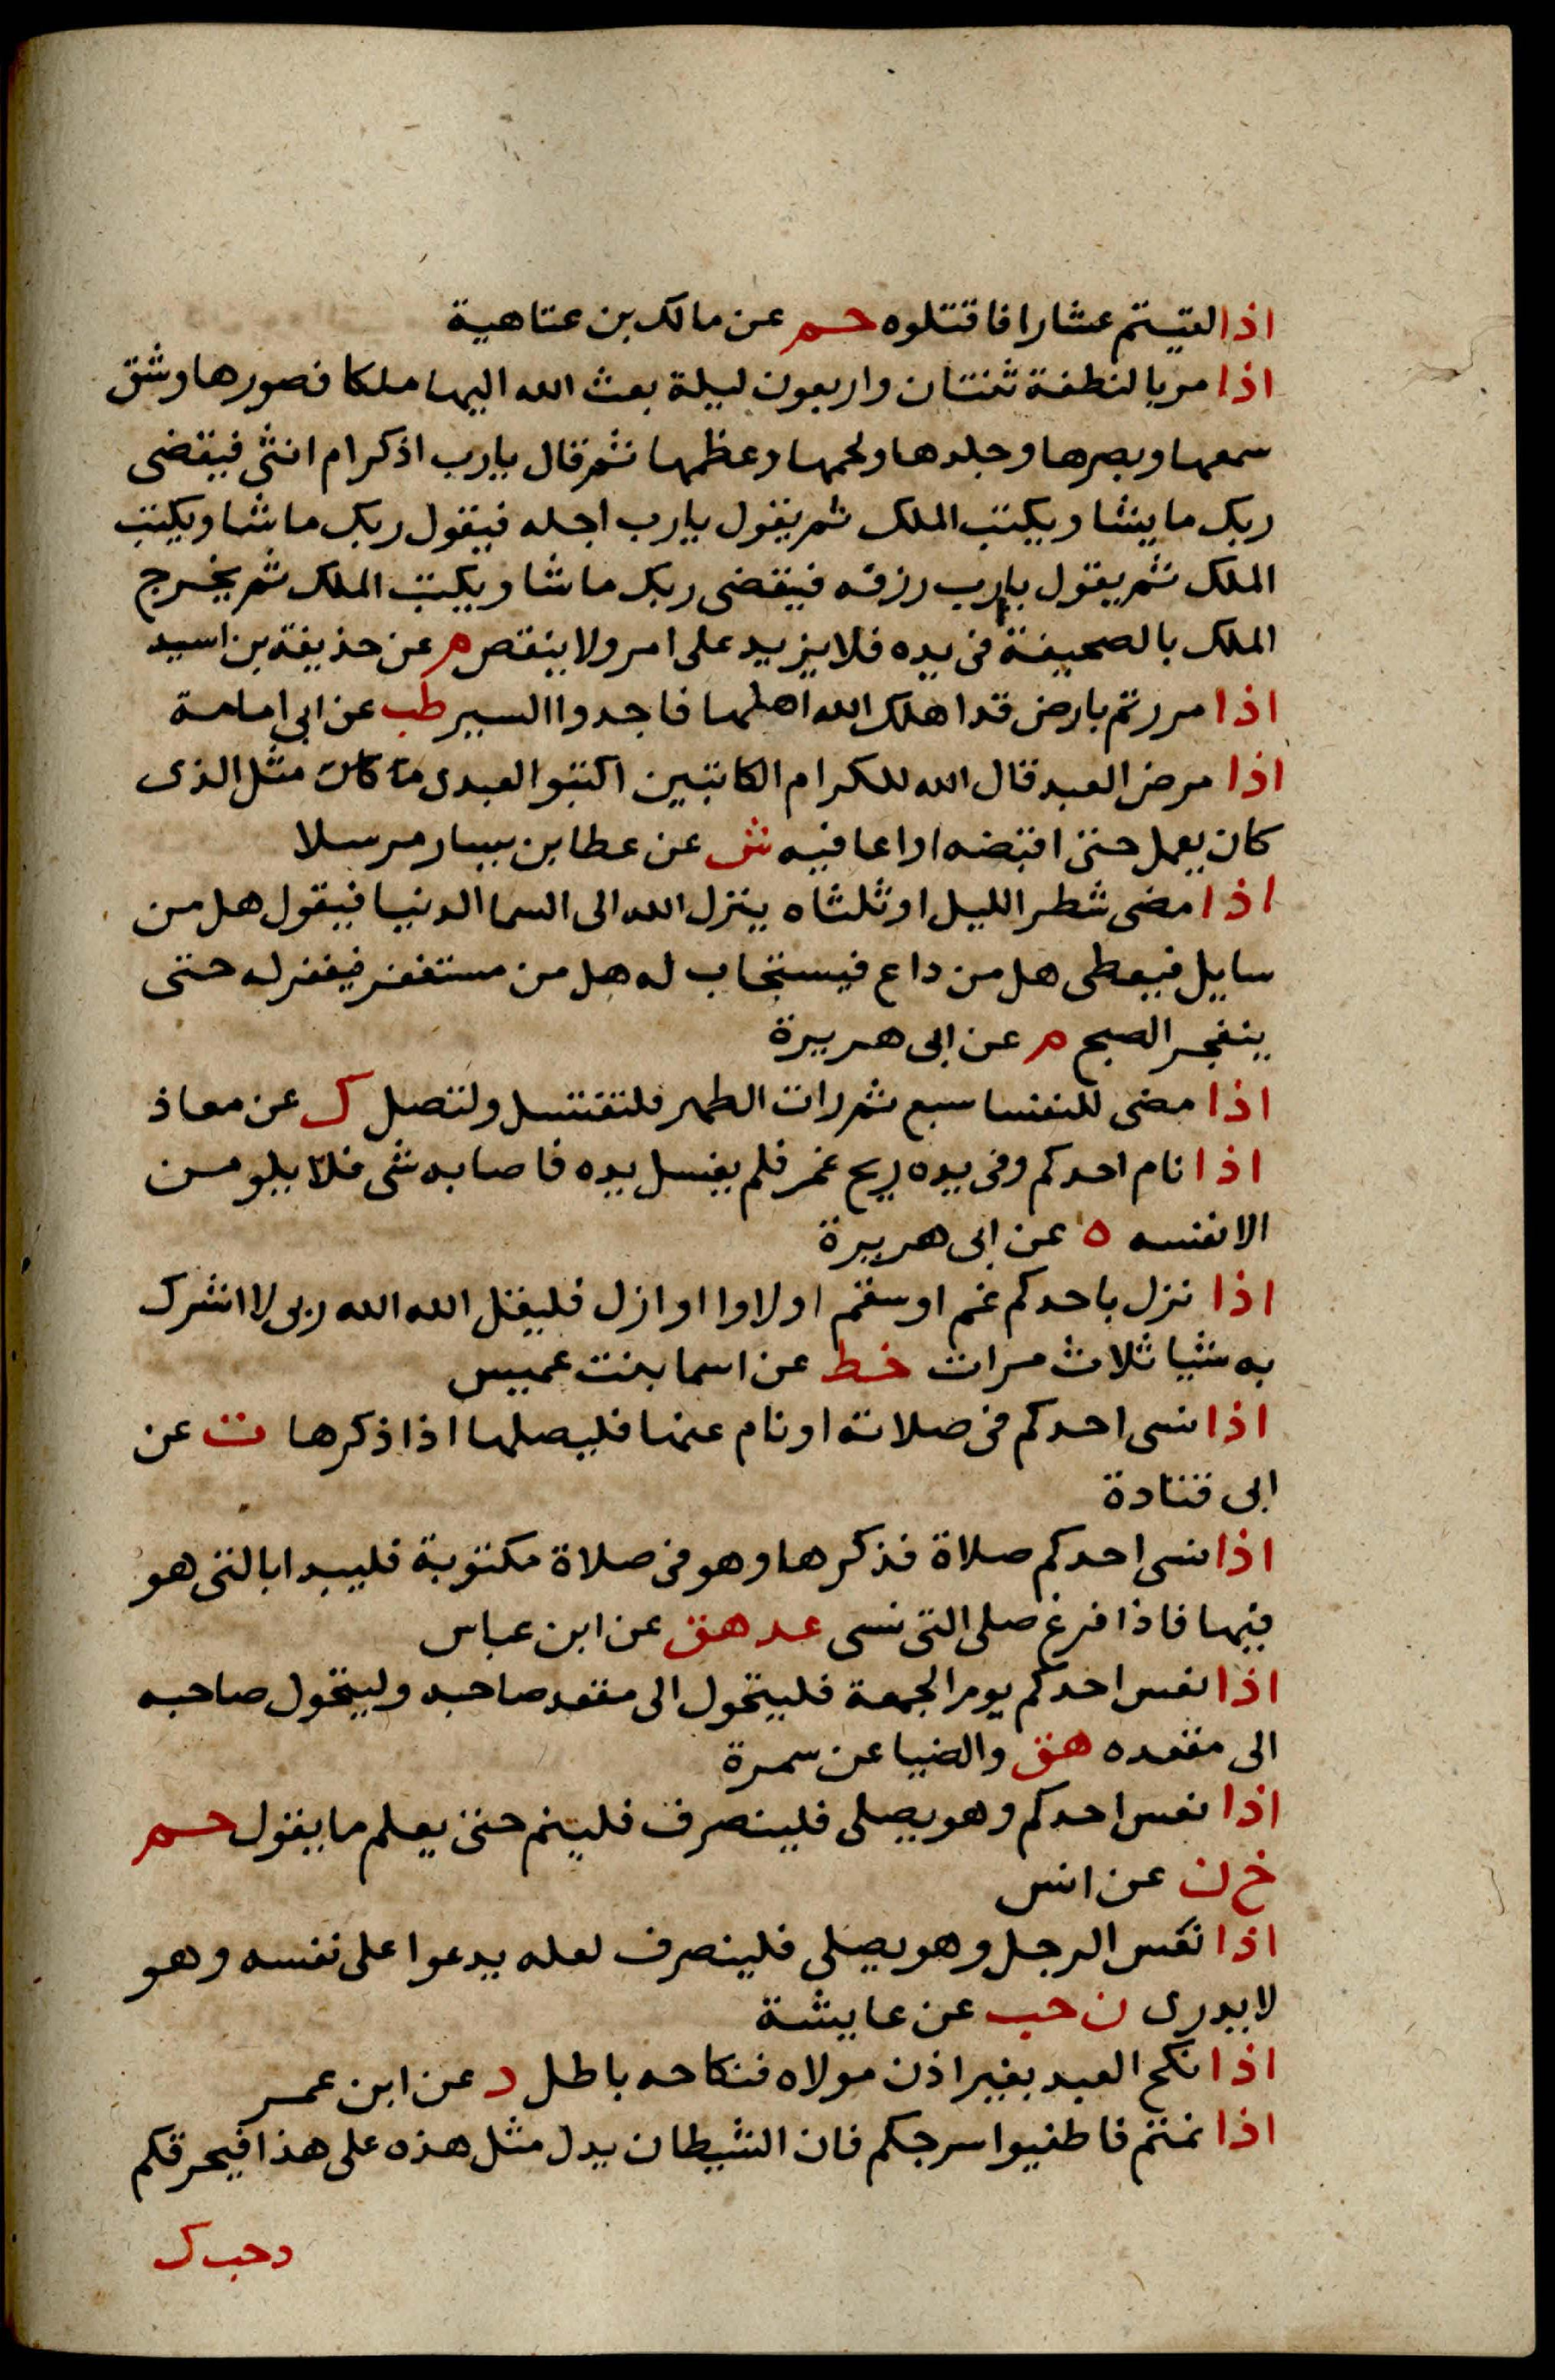 اذا لقيتم عشارا فاقتلوه حم عن مالك بن عتاهية
اذا مر بالنطفة ثنتان واربعون ليلة بعث الله اليها ملكا فصورها وشق
سمعها وبصرها وجلدها ولحمها وعظمها ثم قال يارب اذكر ام انثى فيقضى
ربك ما يشا ويكتب الملك ثم يقول يارب اجله فيقول ربك ما شا ويكتب
الملك ثم يقول يارب رزقه فيقضى ربك ما شا ويكتب الملك ثم يخرج
الملك بالصحيفة فى يده فلا يزيد على امر ولا ينقص م عن حذيفة بن اسيد
اذا مررتم بارض قد اهلك الله اهلها فاجدوا السير طب عن ابى امامة
اذا مرض العبد قال الله للكرام الكاتبين اكتبوا لعبدى ما كان مثل الذى
كان يعمل حتى اقبضه او اعافيه ش عن عطا بن يسار مرسلا
اذا مضى شطر الليل او ثلثاه ينزل الله الى السما الدنيا فيقول هل من
سايل فيعطى هل من داع فيستجاب له هل من مستغفر فيغفر له حتى
ينفجر الصبح م عن ابى هريرة
اذا مضى للنفسا سبع ثم رات الطهر فلتغتسل ولتصل ك عن معاذ
اذا نام احدكم وفى يده ريح غمر فلم يغسل يده فاصابه شى فلا يلومن
الا نفسه ه عن ابى هريرة
اذا نزل باحدكم غم او سقم او لاوا او ازل فليقل الله الله ربى لا اشرك
به شيا ثلاث مرات خط عن اسما بنت عميس
اذا نسى احدكم فى صلاته او نام عنها فليصلها اذا ذكرها ت عن
ابى قتادة
اذا نسى احدكم صلاة فذكرها وهو فى صلاة مكتوبة فليبدا بالتى هو
فيها فاذا فرغ صلى التى نسى عد هق عن ابن عباس
اذا نعس احدكم يوم الجمعة فليتحول الى مقعد صاحبه وليتحول صاحبه
الى مقعده هق والضيا عن سمرة
اذا نعس احدكم وهو يصلى فلينصرف فلينم حتى يعلم ما يقول حم
خ ن عن انس
اذا نعس الرجل وهو يصلى فلينصرف لعله يدعوا على نفسه وهو
لا يدرى ن حب عن عايشة
اذا نكح العبد بغير اذن مولاه فنكاحه باطل د عن ابن عمر
اذا نمتم فاطفيوا سرجكم فان الشيطان يدل مثل هذه على هذا فيحرقكم
د حب ك